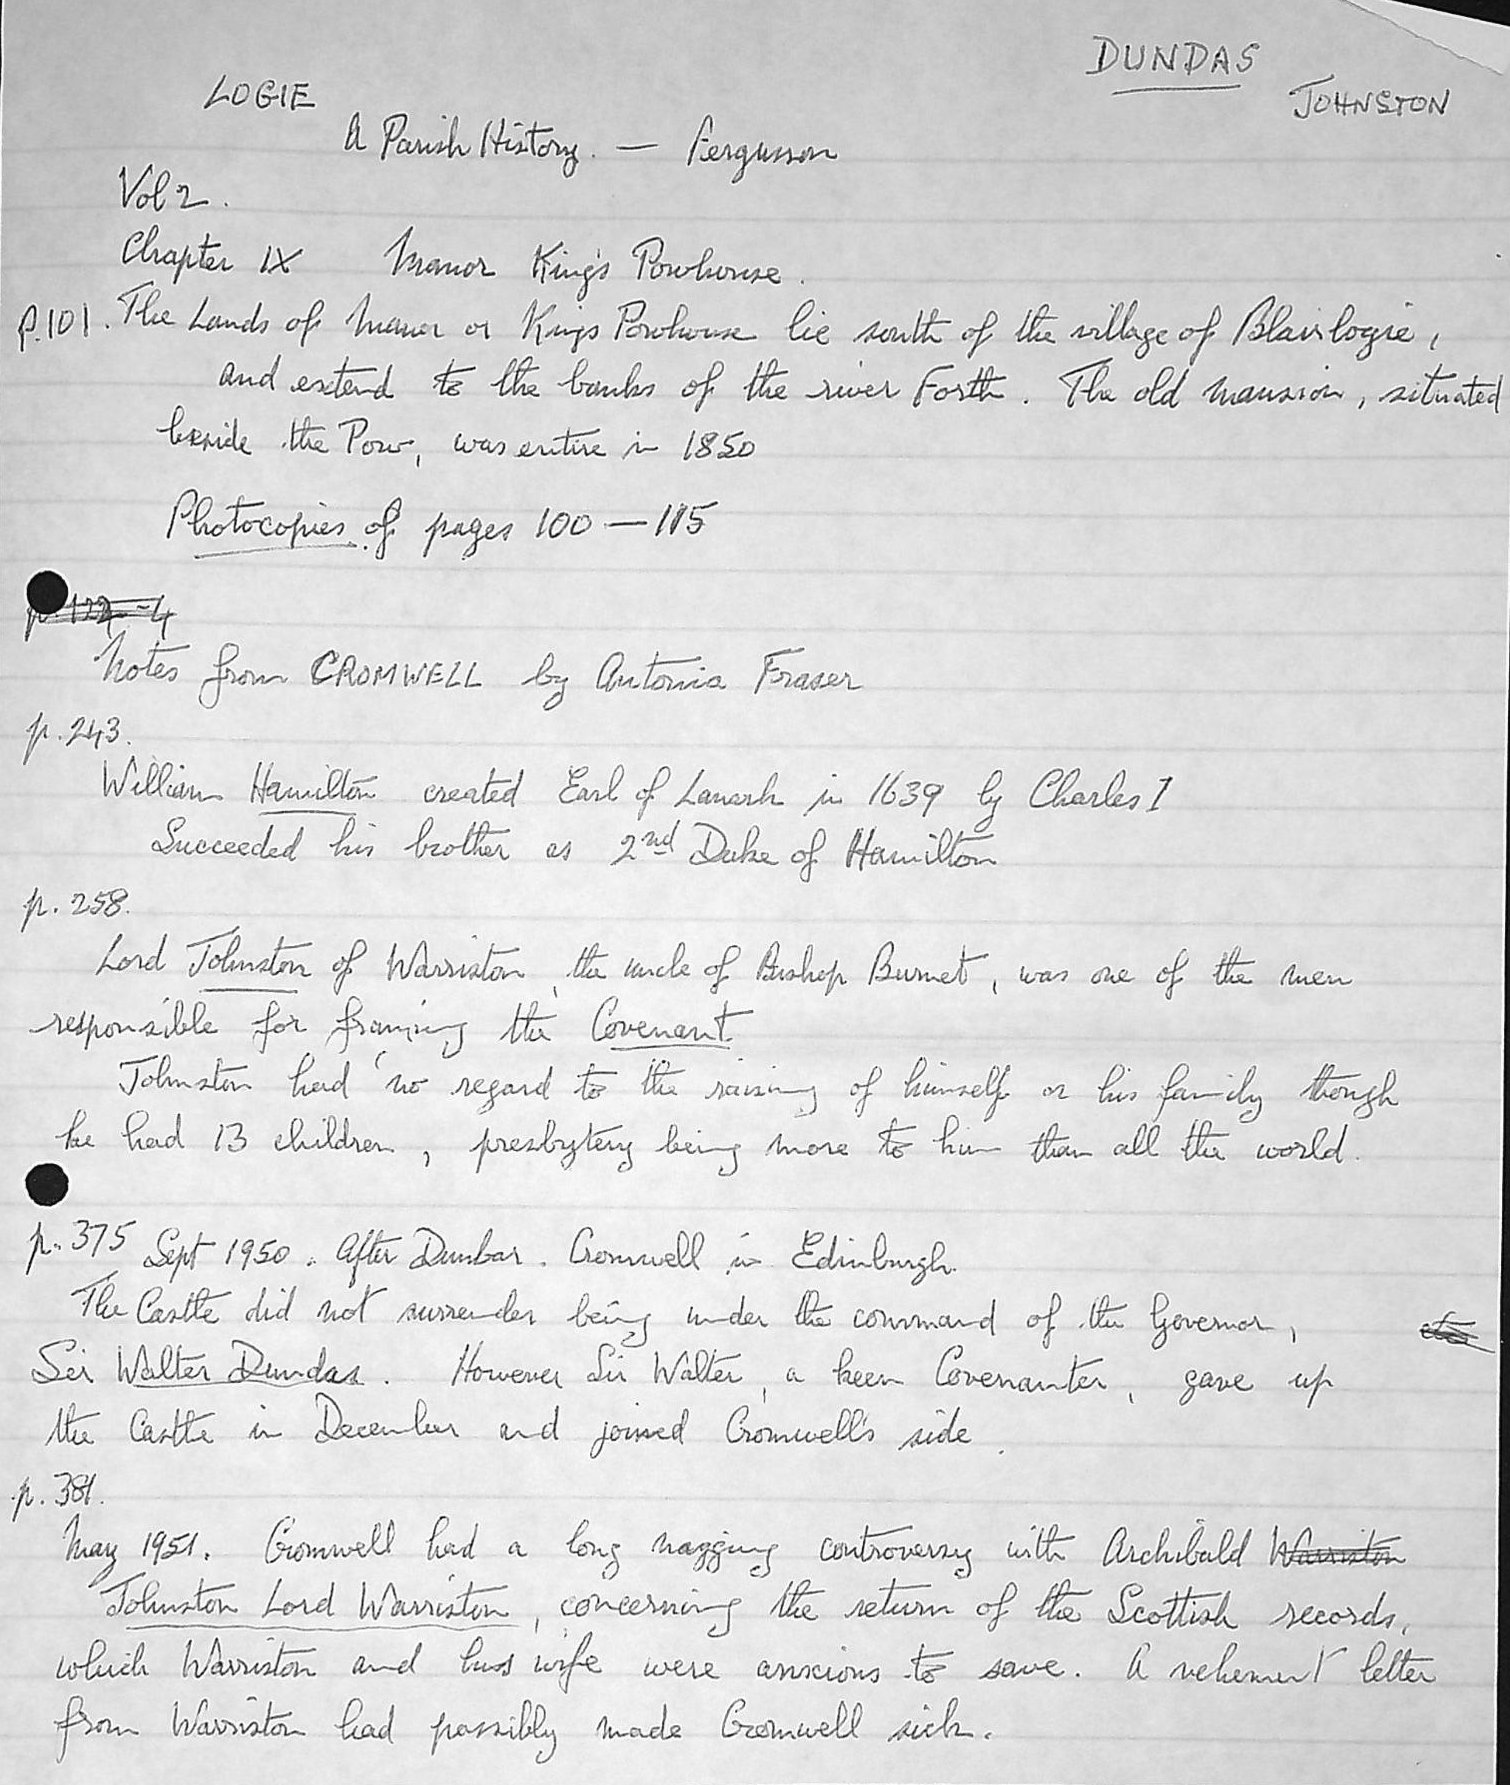 DUNDAS
LOGIE
JOHNSTON
A Parish History. — Fergusson
Vol 2.
Chapter IX Manor King's Powhouse.
p.101. The Lands of Manor or Kings Powhouse lie south of the village of Blairlogie,
and extend to the banks of the river Forth. The old mansion, situated
beside the Pow, was entire in 1850
Photocopies of pages 100 — 115
p. 122-4
Notes from CROMWELL by Antonia Fraser
p. 243.
William Hamilton created Earl of Lanark in 1639 by Charles I
Succeeded his brother as 2nd Duke of Hamilton
p. 258.
Lord Johnston of Warriston, the uncle of Bishop Burnet, was one of the men
responsible for framing the Covenant
Johnston had 'no regard to the raising of himself or his family though
he had 13 children, presbytery being more to him than all the world.
p. 375 Sept 1950. After Dunbar. Cromwell in Edinburgh.
The Castle did not surrender being under the command of the Governor,
Sir Walter Dundas. However Sir Walter, a keen Covenanter, gave up
the Castle in December and joined Cromwell's side.
p. 381.
May 1951. Cromwell had a long nagging controversy with Archibald Warriston
Johnston Lord Warriston, concerning the return of the Scottish records,
which Warriston and his wife were anxious to save. A vehement letter
from Warriston had possibly made Cromwell sick.